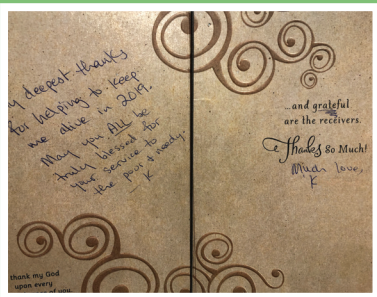 y deepest thanks
for helping to keep
me alive in 2019.
May you ALL be
truly blessed for
your service to
the poor & needy.
K
thank my God
upon every
of you.
...and grateful
are the receivers.
Thanks So Much!
Much love,
K